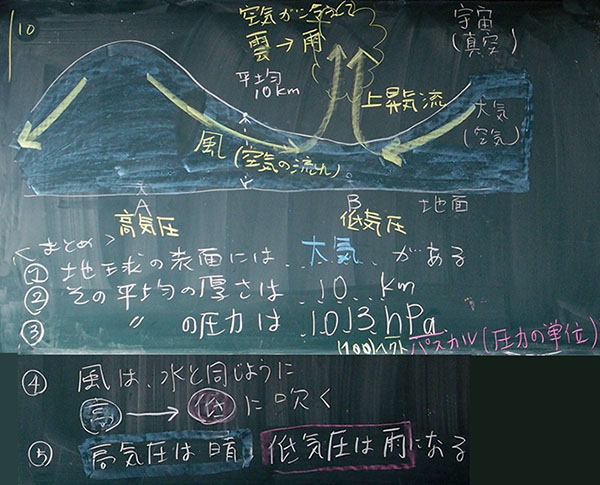 10
空気が冷えて
雲→雨
宇宙
(真空)
平均
10km
上昇気流
大気
(空気)
風(空気の流れ)
A
B
地面
高気圧
低気圧
<まとめ>
① 地球の表面には 大気 がある
② その平均の厚さは 10 km
③ 〃 の圧力は 1013 hPa
(100)ヘクト パスカル(圧力の単位)
④ 風は、水と同じように
高 → 低 に吹く
⑤ 高気圧は晴 低気圧は雨になる